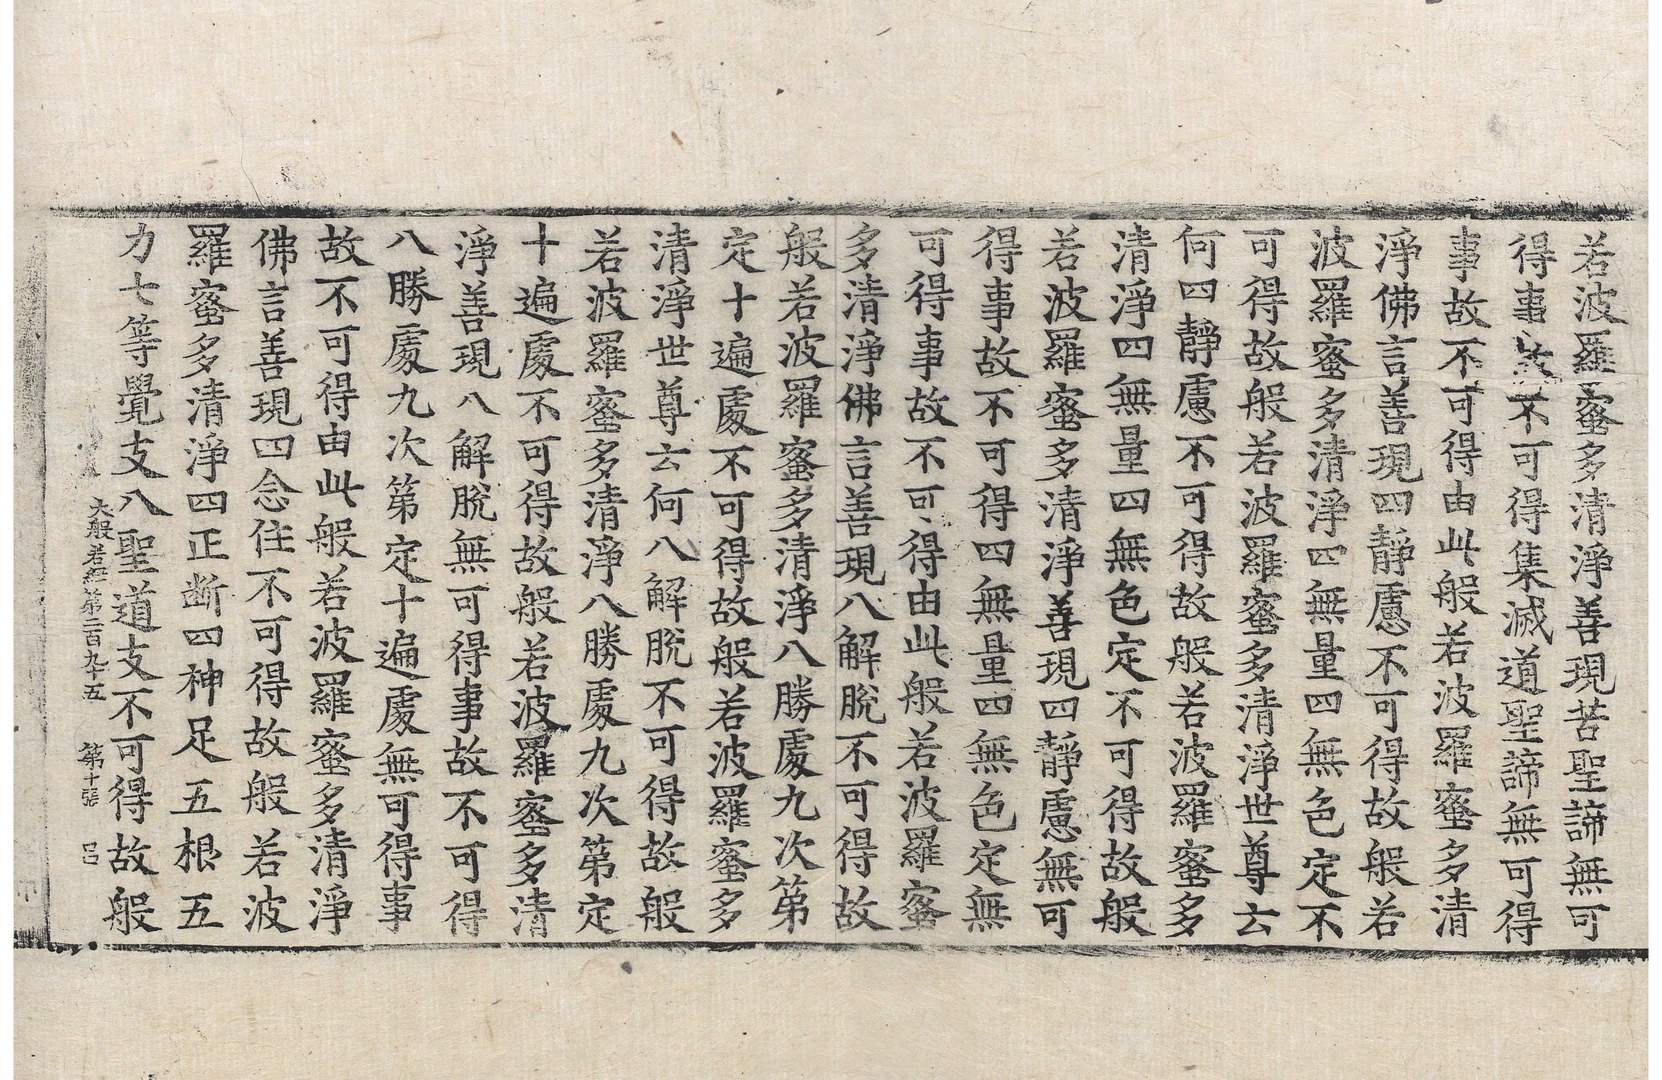 若波羅蜜多清淨善現苦聖諦無可
得事故不可得集滅道聖諦無可得
事故不可得由此般若波羅蜜多清
淨佛言善現四靜慮不可得故般若
波羅蜜多清淨四無量四無色定不
可得故般若波羅蜜多清淨世尊云
何四靜慮不可得故般若波羅蜜多
清淨四無量四無色定不可得故般
若波羅蜜多清淨善現四靜慮無可
得事故不可得四無量四無色定無
可得事故不可得由此般若波羅蜜
多清淨佛言善現八解脫不可得故
般若波羅蜜多清淨八勝處九次第
定十遍處不可得故般若波羅蜜多
清淨世尊云何八解脫不可得故般
若波羅蜜多清淨八勝處九次第定
十遍處不可得故般若波羅蜜多清
淨善現八解脫無可得事故不可得
八勝處九次第定十遍處無可得事
故不可得由此般若波羅蜜多清淨
佛言善現四念住不可得故般若波
羅蜜多清淨四正断四神足五根五
力七等覺支八聖道支不可得故般
大般若經第二百九十五 第十張 呂